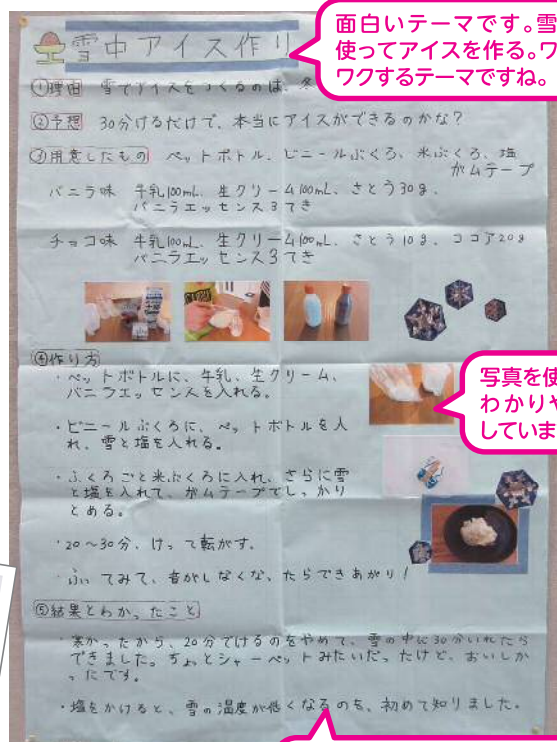 雪中アイス作り
面白いテーマです。雪
使ってアイスを作る。ワ
ワクするテーマですね。
①理由 雪でアイスをつくるのは、冬
②予想 30分けるだけで、本当にアイスができるのかな?
③用意したもの ペットボトル、ビニールぶくろ、米ぶくろ、塩
ガムテープ
バニラ味 牛乳100mL、生クリーム100mL、さとう30g、
バニラエッセンス3てき
チョコ味 牛乳100mL、生クリーム100mL、さとう10g、ココア20g
バニラエッセンス3てき
④作り方
・ペットボトルに、牛乳、生クリーム、
バニラエッセンスを入れる。
・ビニールぶくろに、ペットボトルを入
れ、雪と塩を入れる。
・ふくろごと米ぶくろに入れ、さらに雪
と塩を入れて、ガムテープでしっかり
とめる。
・20〜30分、けって転がす。
・ふってみて、音がしなくなったらできあがり!
写真を使
わかりや
していま
⑤結果とわかったこと
・寒かったから、20分でけるのをやめて、雪の中に30分いれたら
できました。ちょっとシャーベットみたいだったけど、おいしか
ったです。
・塩をかけると、雪の温度が低くなるのを、初めて知りました。